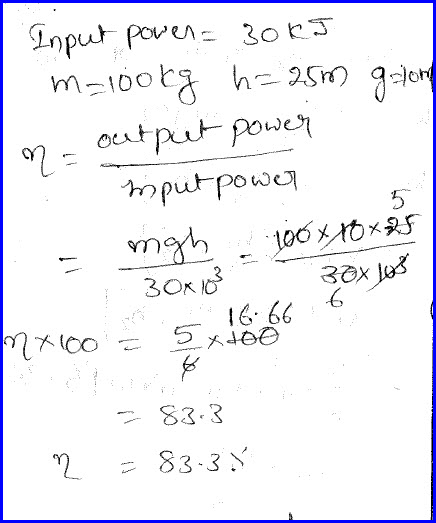 Input power = 30 KJ
m=100kg h=25m g=10m
η = output power / Input power
= mgh / 30×10³ = 100×10×25 5 / 30×10³ 6
η×100 = 5/6 ×100 16.66
= 83.3
η = 83.3%